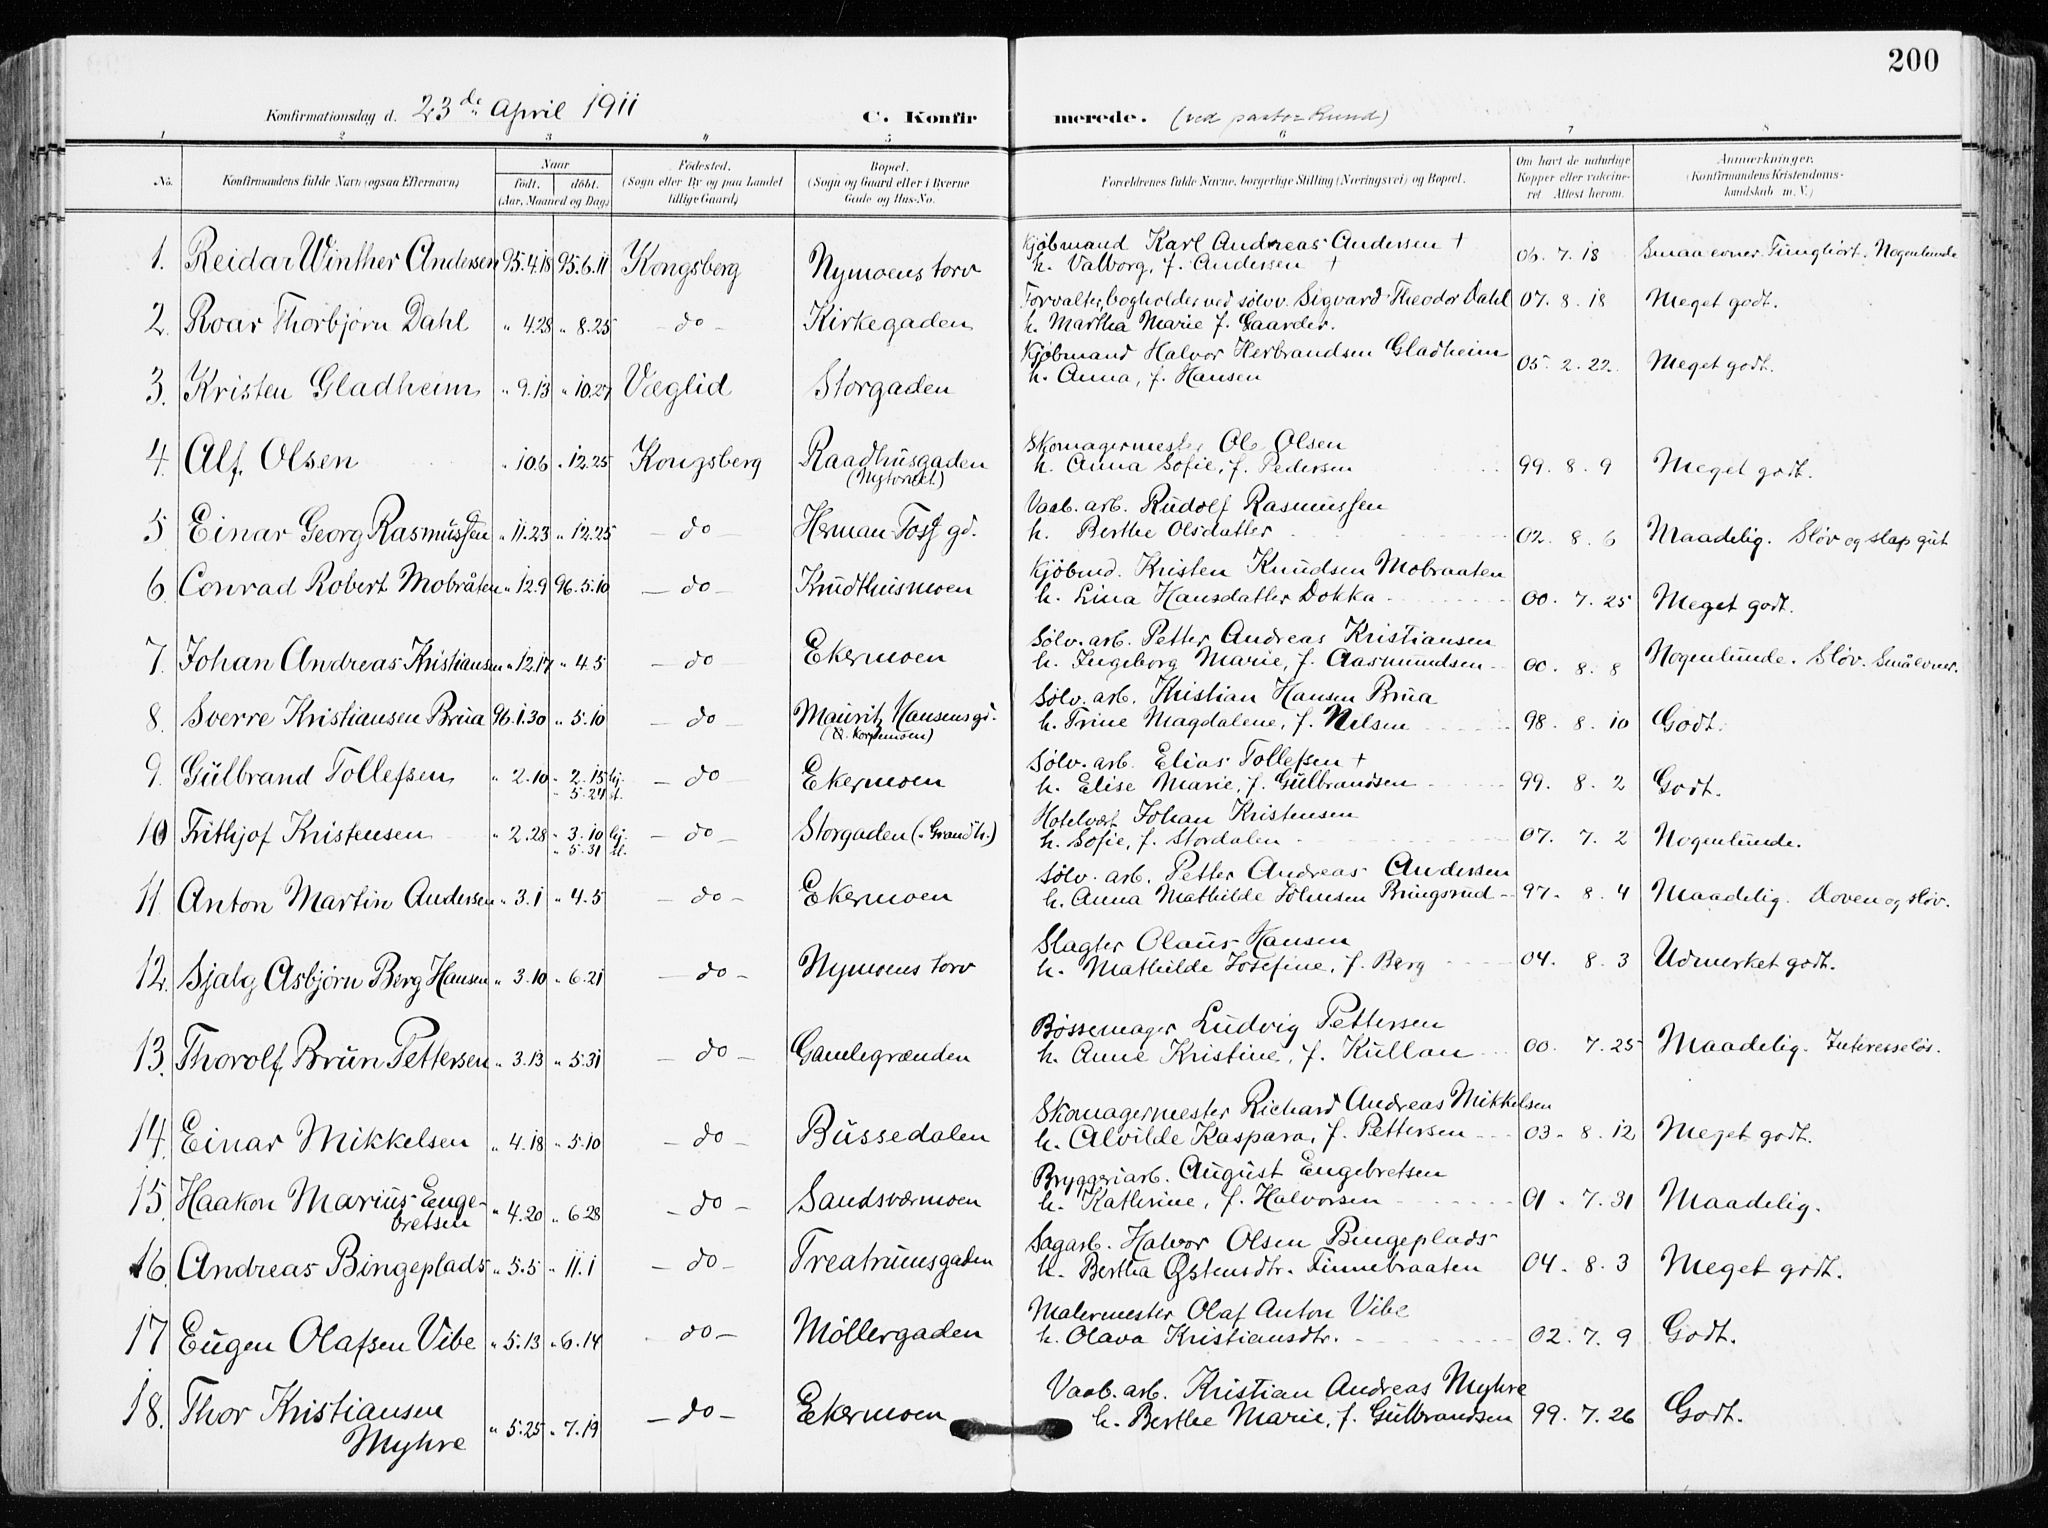 200
Konfirmationsdag d. 23de April 1911 C. Konfirmerede. (ved pastor Lund)
1 2 3 4 5 6 7 8
No. Konfirmandens fulde Navn (ogsaa Efternavn) Naar født. døbt. (Aar, Maaned og Dag) Fødested. (Sogn eller By og paa Landet tillige Gaard) Bopæl. (Sogn og Gaard eller i Byerne Gade og Hus-No. Forældrenes fulde Navne, borgerlige Stilling (Næringsvei) og Bopæl. Om havt de naturlige Kopper eller vaccineret Attest herom. Anmærkninger. (Konfirmandens Kristendomskundskab m. V.)
1. Reidar Winther Andersen 95.4.18 95.6.11 Kongsberg Nymoens torv Kjøbmand Karl Andreas Andersen +
h. Valborg, f. Andersen + 06. 7. 18 Smaa evner. Tunghørt. Nogenlunde
2. Roar Thorbjørn Dahl " 4.28 " 8.25 - do - Kirkegaden Forvalter, bogholder ved sølvv. Sigvard Theodor Dahl
h. Martha Marie f. Gaarder. 07. 8. 18 Meget godt.
3. Kristen Gladheim " 9.13 " 10.27 Væglid Storgaden Kjøbmand Halvor Herbrandsen Gladheim
h. Anna, f. Hansen 05. 2. 22. Meget godt.
4. Alf Olsen " 10.6 " 12.25 Kongsberg Raadhusgaden
(Nytorvet.) Skomagermester Ole Olsen
h. Anna Sofie, f. Pedersen 99. 8. 9 Meget godt.
5. Einar Georg Rasmussen " 11.23 " 12.25 - do - Herman Foss gd. Vaab. arb. Rudolf Rasmussen
h. Berthe Olsdatter 02. 8. 6 Maadelig. Sløv og slap gut
6. Conrad Robert Mobråten " 12.9 96.5.10 - do - Knudthusmoen Kjøbmd. Kristen Knudsen Mobraaten
h. Lina Hansdatter Dokka 00. 7. 25 Meget godt.
7. Johan Andreas Kristiansen " 12.17 " 4.5 - do - Ekermoen Sølv. arb. Petter Andreas Kristiansen
h. Ingeborg Marie, f. Aasmundsen 00. 8. 8 Nogenlunde. Sløv. Småevner.
8. Sverre Kristiansen Brua 96.1.30 " 5.10 - do - Mauritz Hansens gd.
Sølv. arb. Kristian Hansen Brua
h. Trine Magdalene, f. Nilsen 98. 8. 10 Godt.
9. Gulbrand Tollefsen " 2.10 " 2.15 hj.
" 5.24 st. - do - Ekermoen Sølv. arb. Elias Tollefsen +
h. Elise Marie, f. Gulbrandsen 99. 8. 2 Godt.
10 Frithjof Kristensen " 2.28 " 3.10 hj.
" 5.31 st. - do - Storgaden ("Grand h.) Hotelvært Johan Kristensen
h. Sofie, f. Stordalen 07. 7. 2 Nogenlunde.
11 Anton Martin Andersen " 3.1 " 4.5 - do - Ekermoen Sølv. arb. Petter Andreas Andersen
h. Anna Mathilde Johnsen Bringsrud 97. 8. 4 Maadelig. Doven og sløv.
12. Sjalg Asbjørn Berg Hansen " 3.10 " 6.21 - do - Nymoens torv Slagter Olaus Hansen
h. Mathilde Josefine, f. Berg 04. 8. 3 Udmerket godt.
13. Thorolf Brun Pettersen " 3.13 " 5.31 - do - Gamlegrænden Bøssemager Ludvig Pettersen
h. Anne Kristine, f. Kullan 00. 7. 25 Maadelig. Interesseløs.
14. Einar Mikkelsen " 4.18 " 5.10 - do - Bussedalen Skomagermester Richard Andreas Mikkelsen
h. Alvilde Kaspara, f. Pettersen 03. 8. 12 Meget godt.
15. Haakon Marius Enge-
bretsen " 4.20 " 6.28 - do - Sandsværmoen Bryggeriarb. August Engebretsen
h. Kathrine, f. Halvorsen 01. 7. 31 Maadelig.
16. Andreas Bingeplads " 5.5 " 11.1 - do - Treatrumsgaden Sagarb. Halvor Olsen Bingeplads
h. Bertha Østensdtr. Finnebraaten 04. 8. 3 Meget godt.
17 Eugen Olafsen Vibe " 5.13 " 6.14 - do - Möllergaden Malermester Olaf Anton Vibe
h. Olava Kristiansdtr. 02. 7. 9 Godt.
18. Thor Kristiansen
Myhre " 5.25 " 7.19 - do - Ekermoen Vaab. arb. Kristian Andreas Myhre
h. Berthe Marie, f. Gulbrandsen 99. 7. 26 Godt.